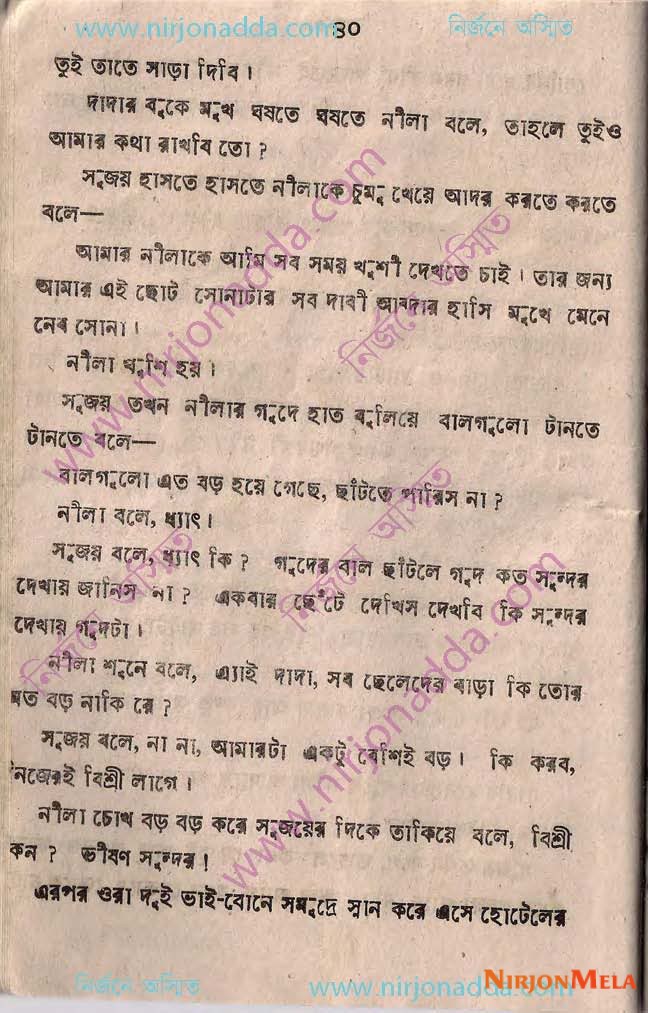 www.nirjonadda.com ৪০ নির্জনে অস্মিত
তুই তাতে সাড়া দিবি।
দাদার বুকে মুখ ঘষতে ঘষতে নীলা বলে, তাহলে তুইও
আমার কথা রাখবি তো ?
সুজয় হাসতে হাসতে নীলাকে চুমু খেয়ে আদর করতে করতে
বলে—
আমার নীলাকে আমি সব সময় খুশী দেখতে চাই। তার জন্য
আমার এই ছোট সোনাটার সব দাবী আবদার হাসি মুখে মেনে
নেব সোনা।
নীলা খুশি হয়।
সুজয় তখন নীলার গুদে হাত বুলিয়ে বালগুলো টানতে
টানতে বলে—
বালগুলো এত বড় হয়ে গেছে, ছাঁটতে পারিস না ?
নীলা বলে, ধ্যাৎ।
সুজয় বলে, ধ্যাৎ কি ? গুদের বাল ছাঁটলে গুদ কত সুন্দর
দেখায় জানিস না ? একবার ছেঁটে দেখিস দেখবি কি সুন্দর
দেখায় গুদটা।
নীলা শুনে বলে, এ্যাই দাদা, সব ছেলেদের বাড়া কি তোর
মত বড় নাকি রে ?
সুজয় বলে, না না, আমারটা একটু বেশিই বড়। কি করব,
নিজেরই বিশ্রী লাগে।
নীলা চোখ বড় বড় করে সুজয়ের দিকে তাকিয়ে বলে, বিশ্রী
কন ? ভীষণ সুন্দর !
এরপর ওরা দুই ভাই-বোনে সমুদ্রে স্নান করে এসে হোটেলের
নির্জনে অস্মিত www.nirjonadda.com
NIRJONMELA
www.nirjonadda.com
নির্জনে অস্মিত
নির্জনে অস্মিত
নির্জনে অস্মিত
www.nirjonadda.com